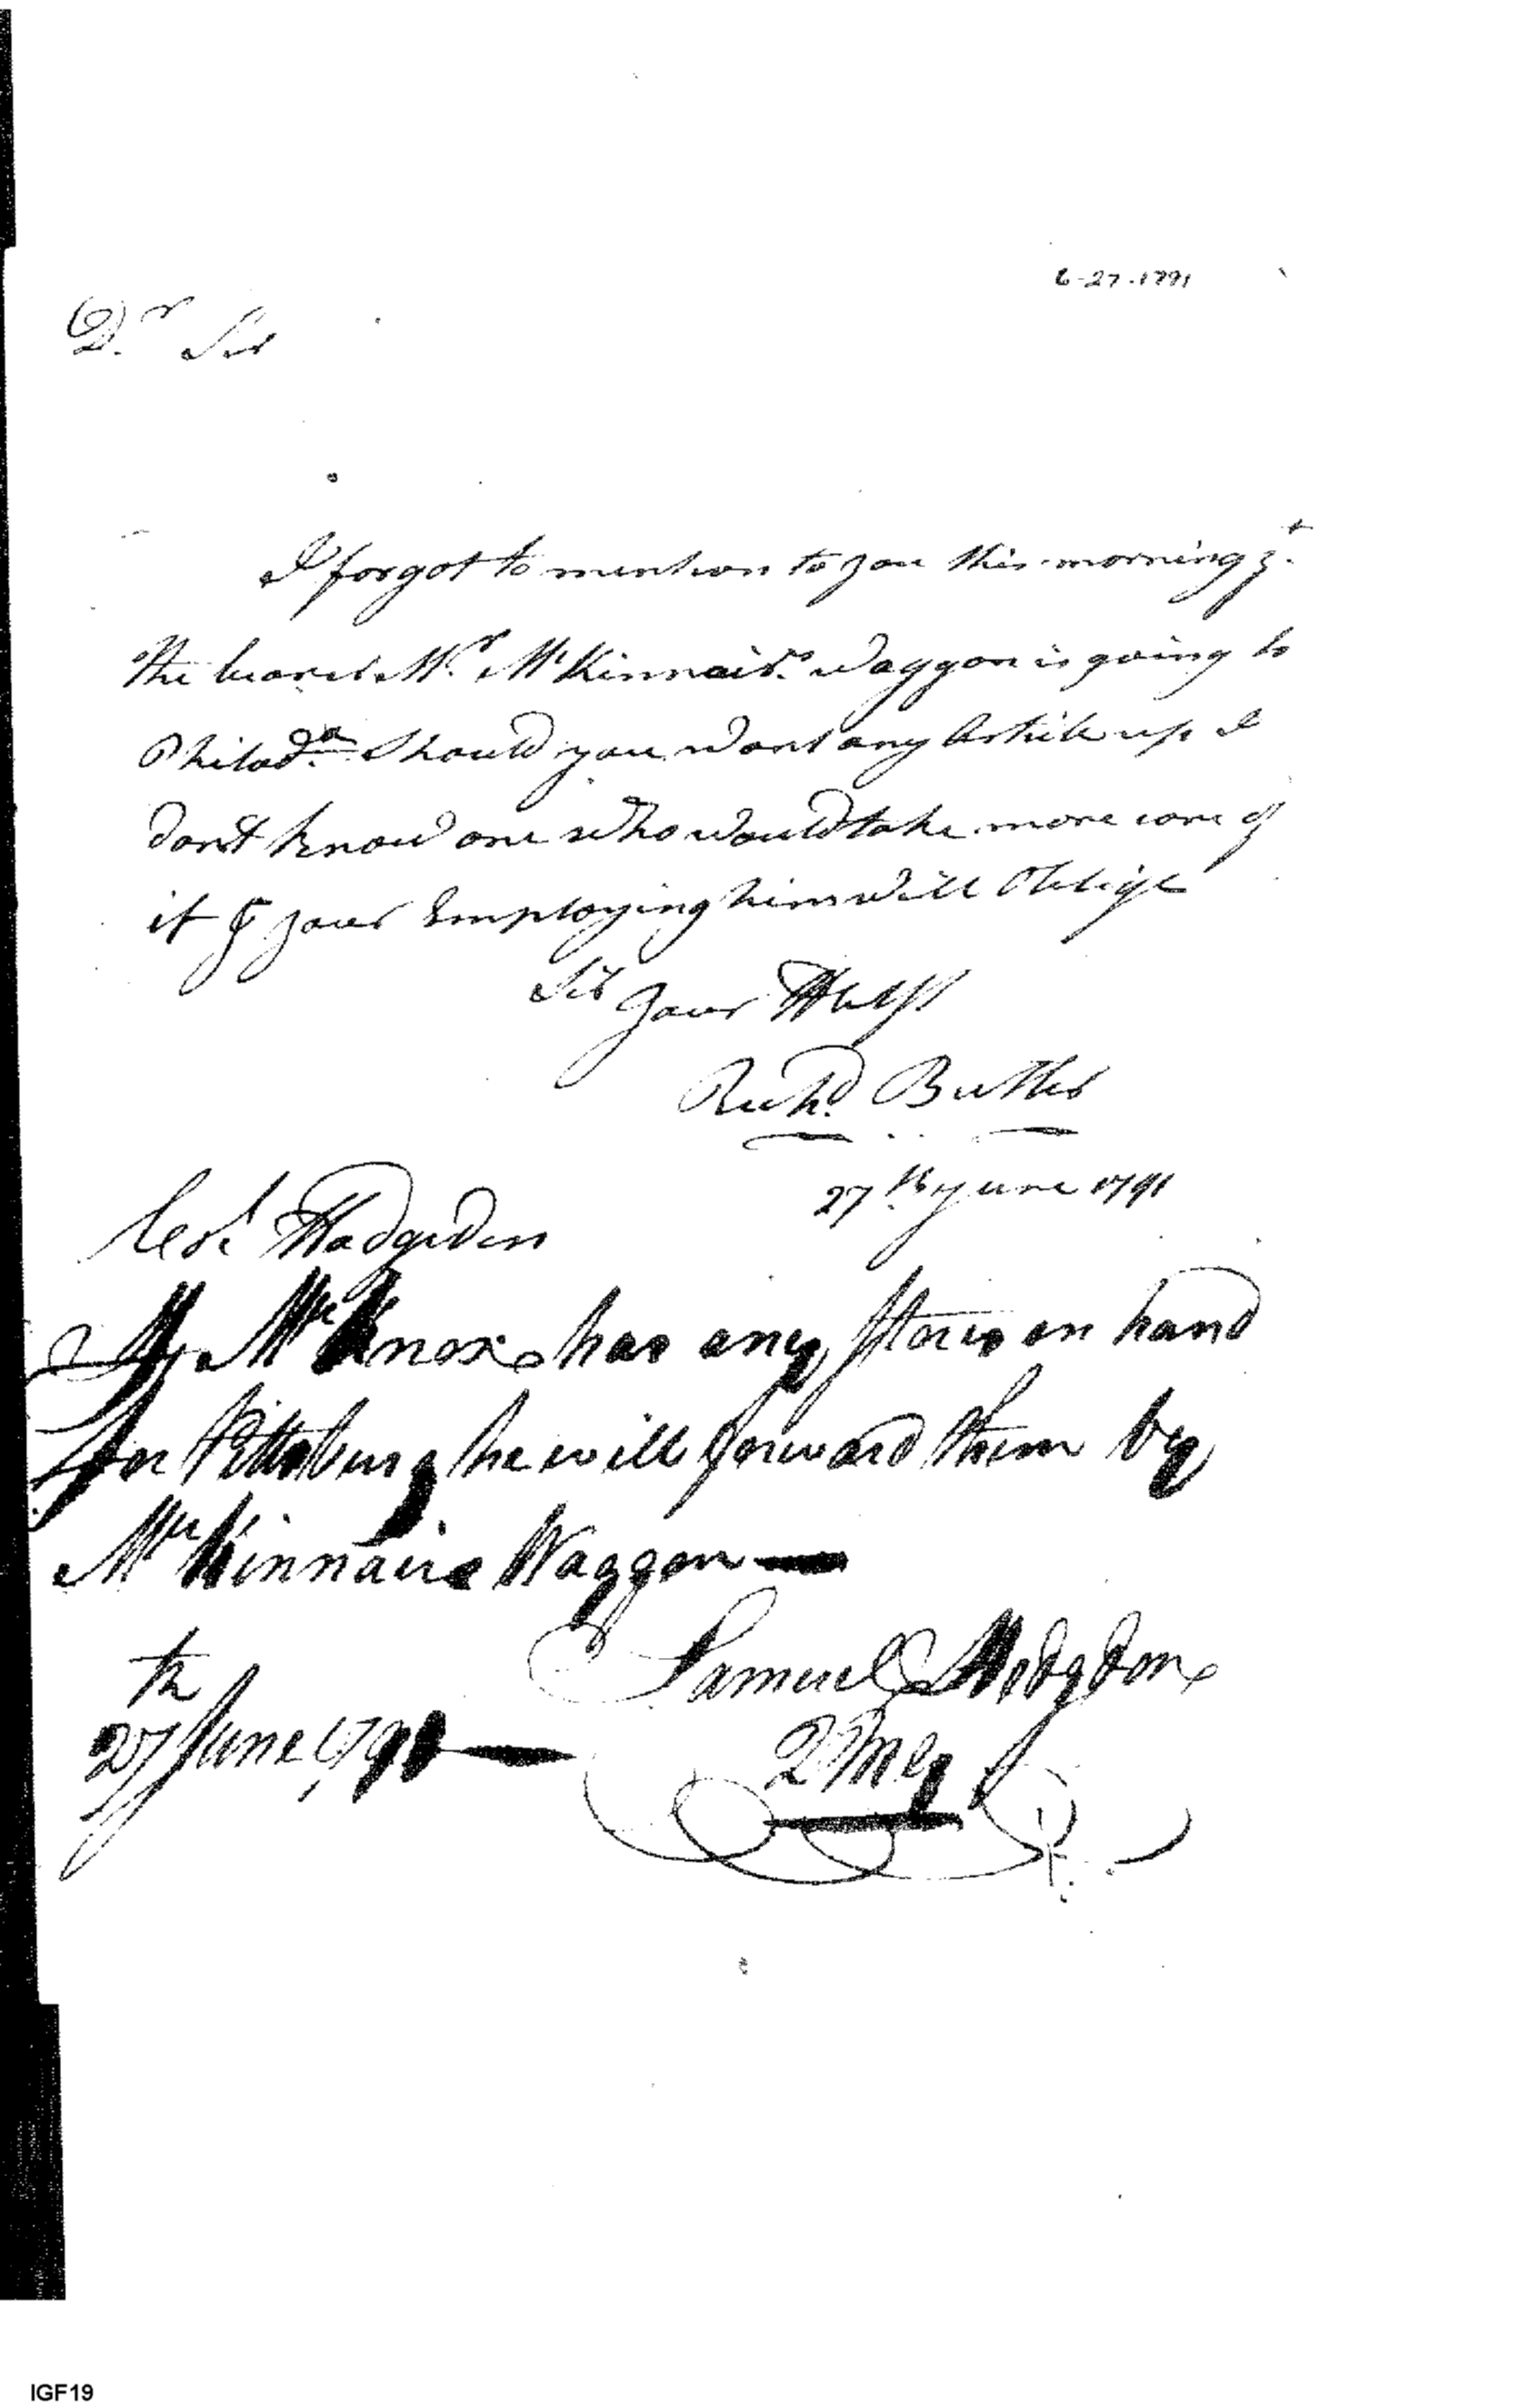 6-27-1791
Dr Sir
I forgot to mention to you this morning yt
the bearer Mr McKinnairs Waggon is going to
Philada. Should you want any Article up I
dont know one who would take more care of
it & your Employing him will Oblige
Sir your
Richd Butler
27th June 1791
Hodgsdon
If Mr Knox has any stores on hand
for Pittsburg he will forward them by
McKinnairs Waggon —
Samuel Hodgdon
27th June 1791 —
QMG
IGF19